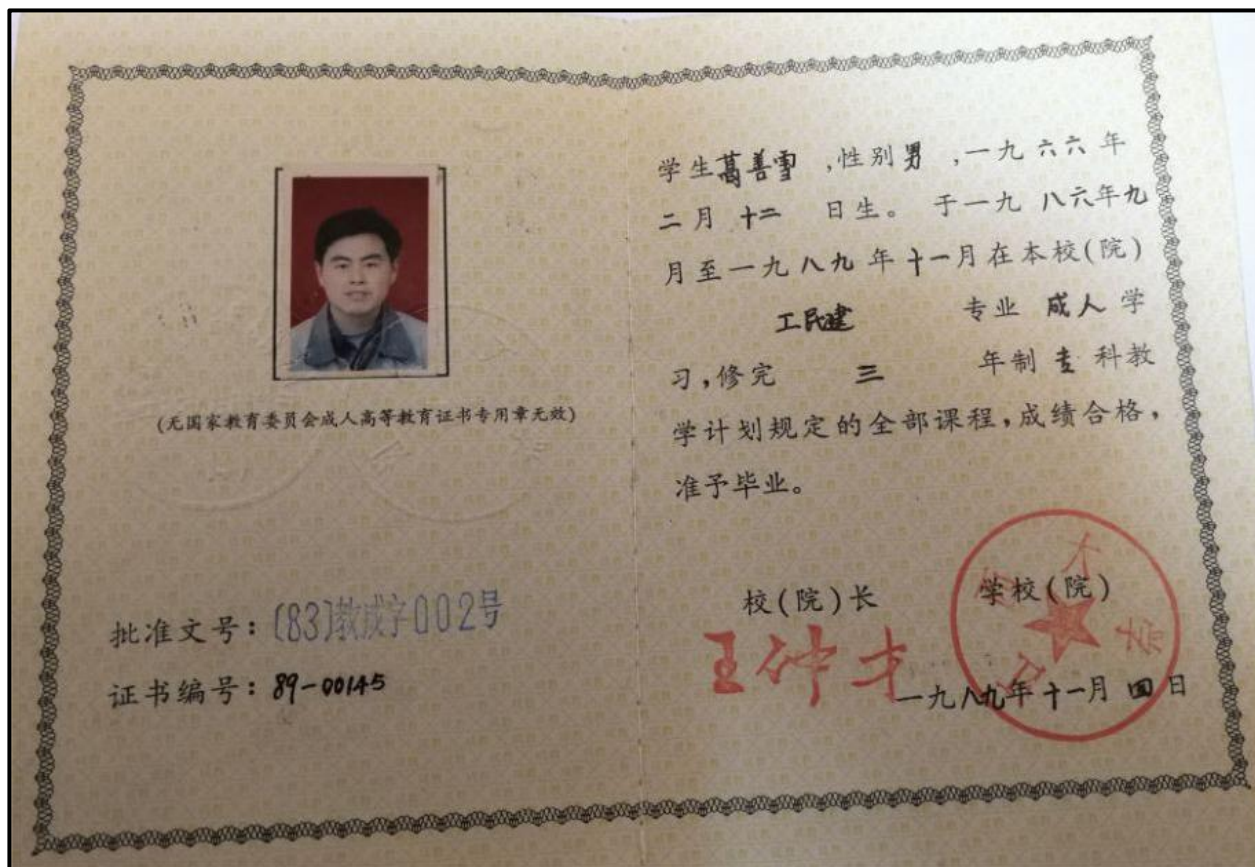 (无国家教育委员会成人高等教育证书专用章无效)
批准文号：(83)教成字002号
证书编号：89-00145
学生葛善雪，性别男，一九六六年
二月十二日生。于一九八六年九
月至一九八九年十一月在本校(院)
工民建 专业 成人 学
习，修完 三 年制 专 科教
学计划规定的全部课程，成绩合格，
准予毕业。
校(院)长 学校(院)
王仲才
一九八九年十一月四日